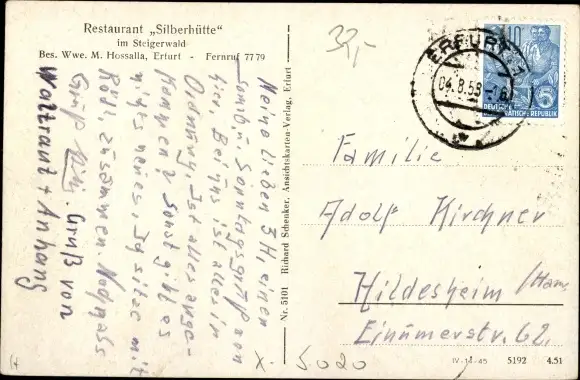 Restaurant „Silberhütte"
im Steigerwald
Bes. Wwe. M. Hossalla, Erfurt - Fernruf 7779
Meine lieben 3 H, einen
Sonntagsgruß von
hier. Bei uns ist alles in
Ordnung, Ist alles ange-
kommen? Sonst gibt es
nichts neues, Ich sitze mit
zusammen. Nochmals
Grüße
. Gruß von
Waltraut + Anhang
Nr. 5101 Richard Schenker, Ansichtskarten-Verlag, Erfurt
32,-
ERFURT
04.8.53
10
5
DEUTSCHE
DEMOKRATISCHE REPUBLIK
Familie
Adolf Kirchner
Hildesheim /Han.
Einumerstr. 62.
X- 5020
IV-14-45 5192 4.51